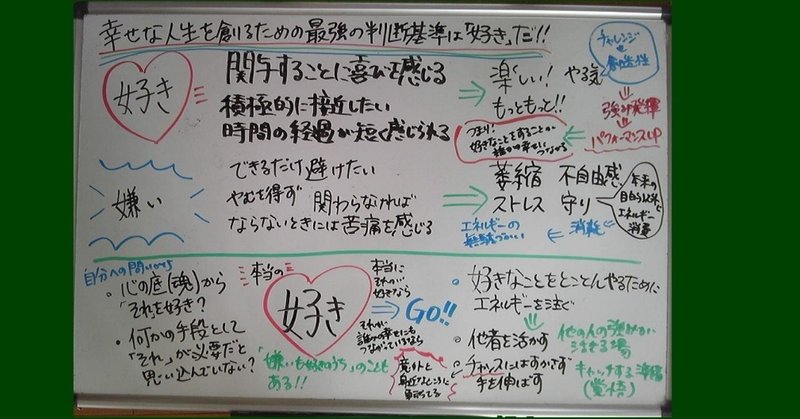 幸せな人生を創るための最強の判断基準は「好き」だ!!
好き
関与することに喜びを感じる
積極的に接近したい
時間の経過が短く感じられる
楽しい! やる気
もっともっと!!
チャレンジ
創造性
強み発揮
パフォーマンスUP
つまり!
好きなことをすることが
誰かの幸せに
つながる
嫌い
できるだけ避けたい
やむを得ず 関わらなければ
ならないときには苦痛を感じる
萎縮 不自由感
ストレス 守り
本来の
自分以外に
エネルギー
消費
消耗
エネルギーの
無駄づかい
自分への問いかけ
・心の底(魂)から
「それを好き?
・何かの手段として
「それ」が必要だと
思い込んでいない?
本当の
好き
本当に
それが
好きなら
GO!!
それが
誰かの幸せにも
つながっているなら
「嫌いも好きのうち」のことも
ある!!
意外と
身近なところに
・好きなことをとことんやるために
エネルギーを注ぐ
・他者を活かす
他の人の強みが
活きる場
・チャンスにはすかさず
手を伸ばす
キャッチする準備
(覚悟)